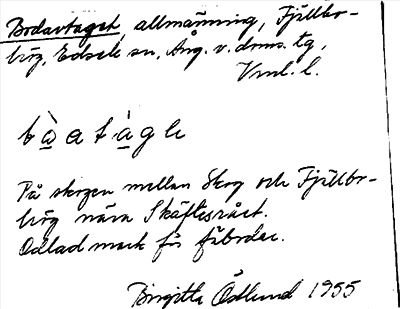 Bodavtaget, allmänning, Fjällbo-
hög, Edsele sn, Ång. v. doms. tg,
Vml. l.
bà̠a tà̠gh
På skogen mellan Skog och Fjällbo-
hög nära Skäftesrået.
Odlad mark för fäbodar.
Birgitta Ödlund 1955